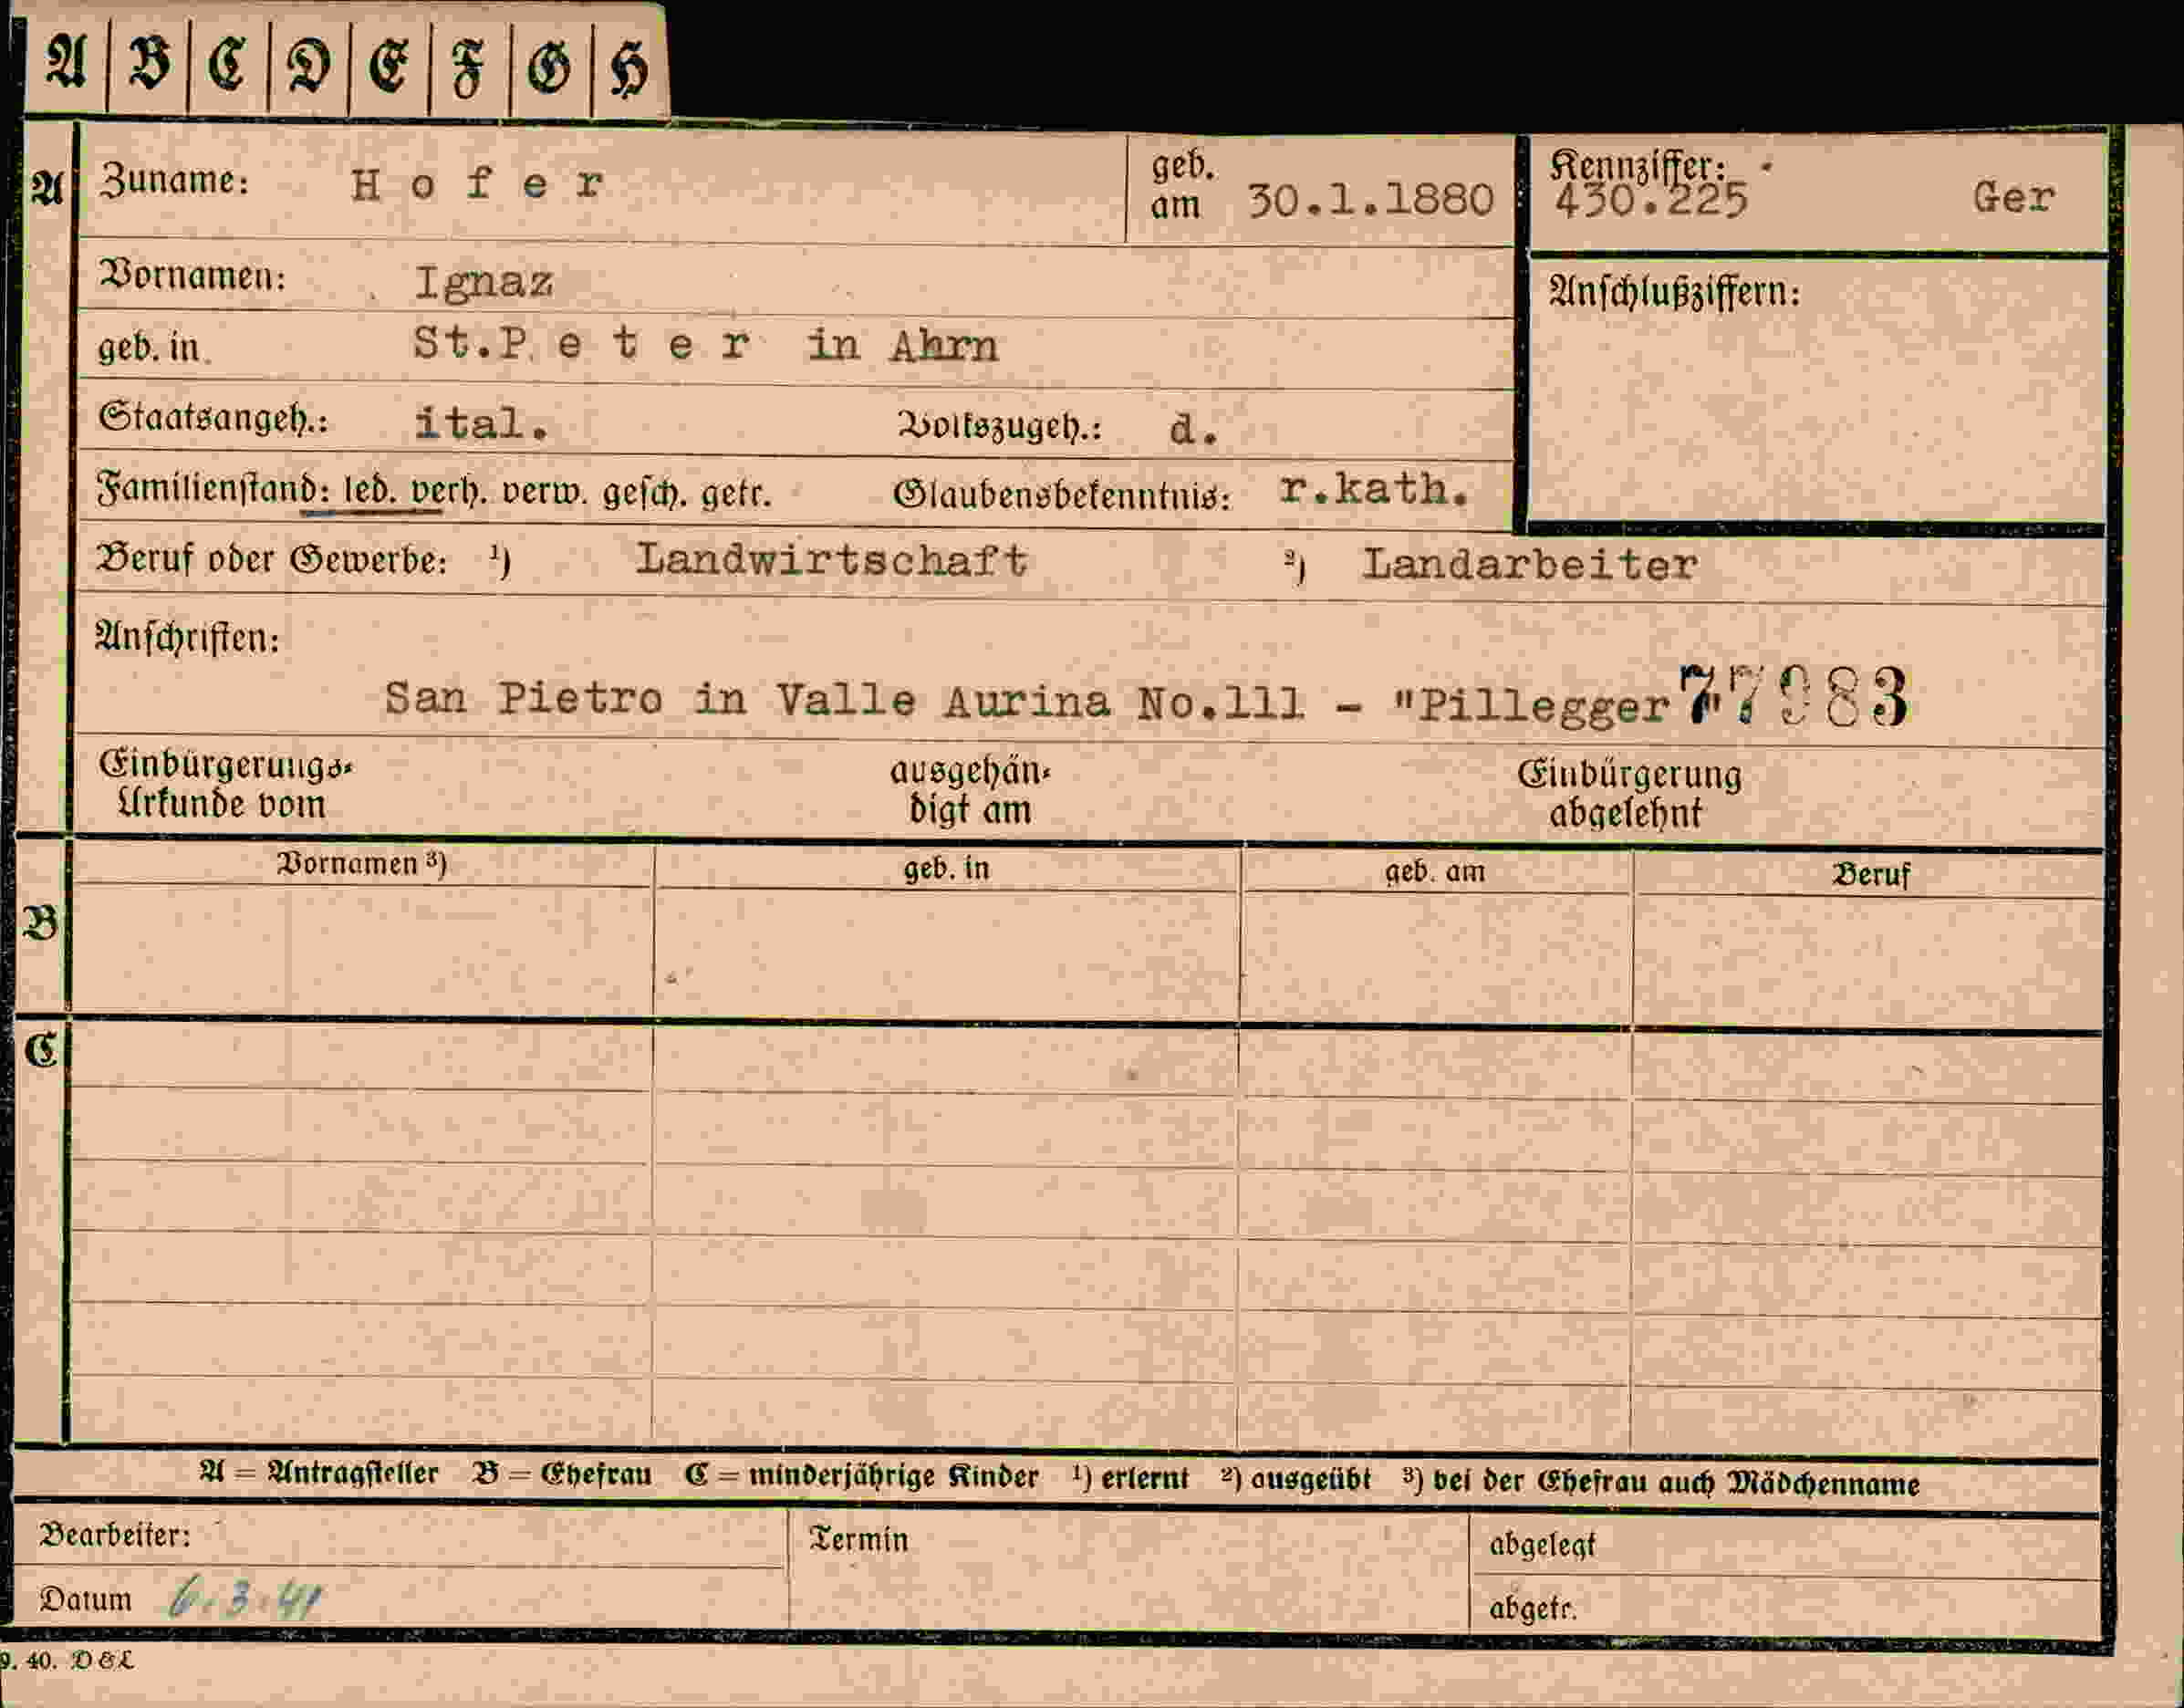 A B C D E F G H
A Zuname: Hofer geb. am 30.1.1880 Kennziffer: 430.225 Ger
Vornamen: Ignaz Anschlußziffern:
geb. in St.Peter in Ahrn
Staatsangeh.: ital. Volkszugeh.: d.
Familienstand: led. verh. verw. gesch. getr. Glaubensbekenntnis: r.kath.
Beruf oder Gewerbe: ¹) Landwirtschaft ²) Landarbeiter
Anschriften:
San Pietro in Valle Aurina No.111 - "Pillegger" 77983
Einbürgerungs-
Urkunde vom
ausgehän-
digt am
Einbürgerung
abgelehnt
Vornamen ³) geb. in geb. am Beruf
B
C
A = Antragsteller B = Ehefrau C = minderjährige Kinder ¹) erlernt ²) ausgeübt ³) bei der Ehefrau auch Mädchenname
Bearbeiter: Termin abgelegt
Datum 6.3.41 abgetr.
9. 40. D & L